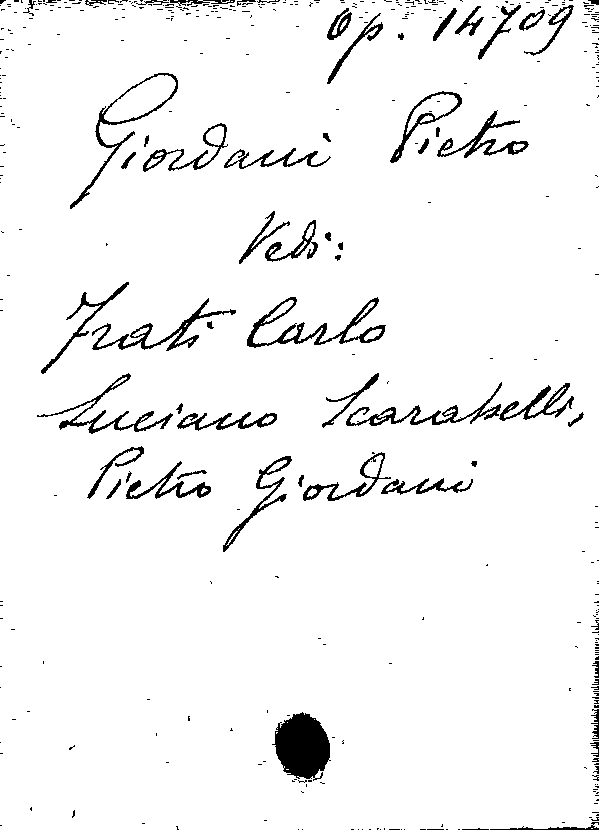 Op. 14709
Giordani Pietro
Vedi:
Frati Carlo
Luciano Scarabelli,
Pietro Giordani